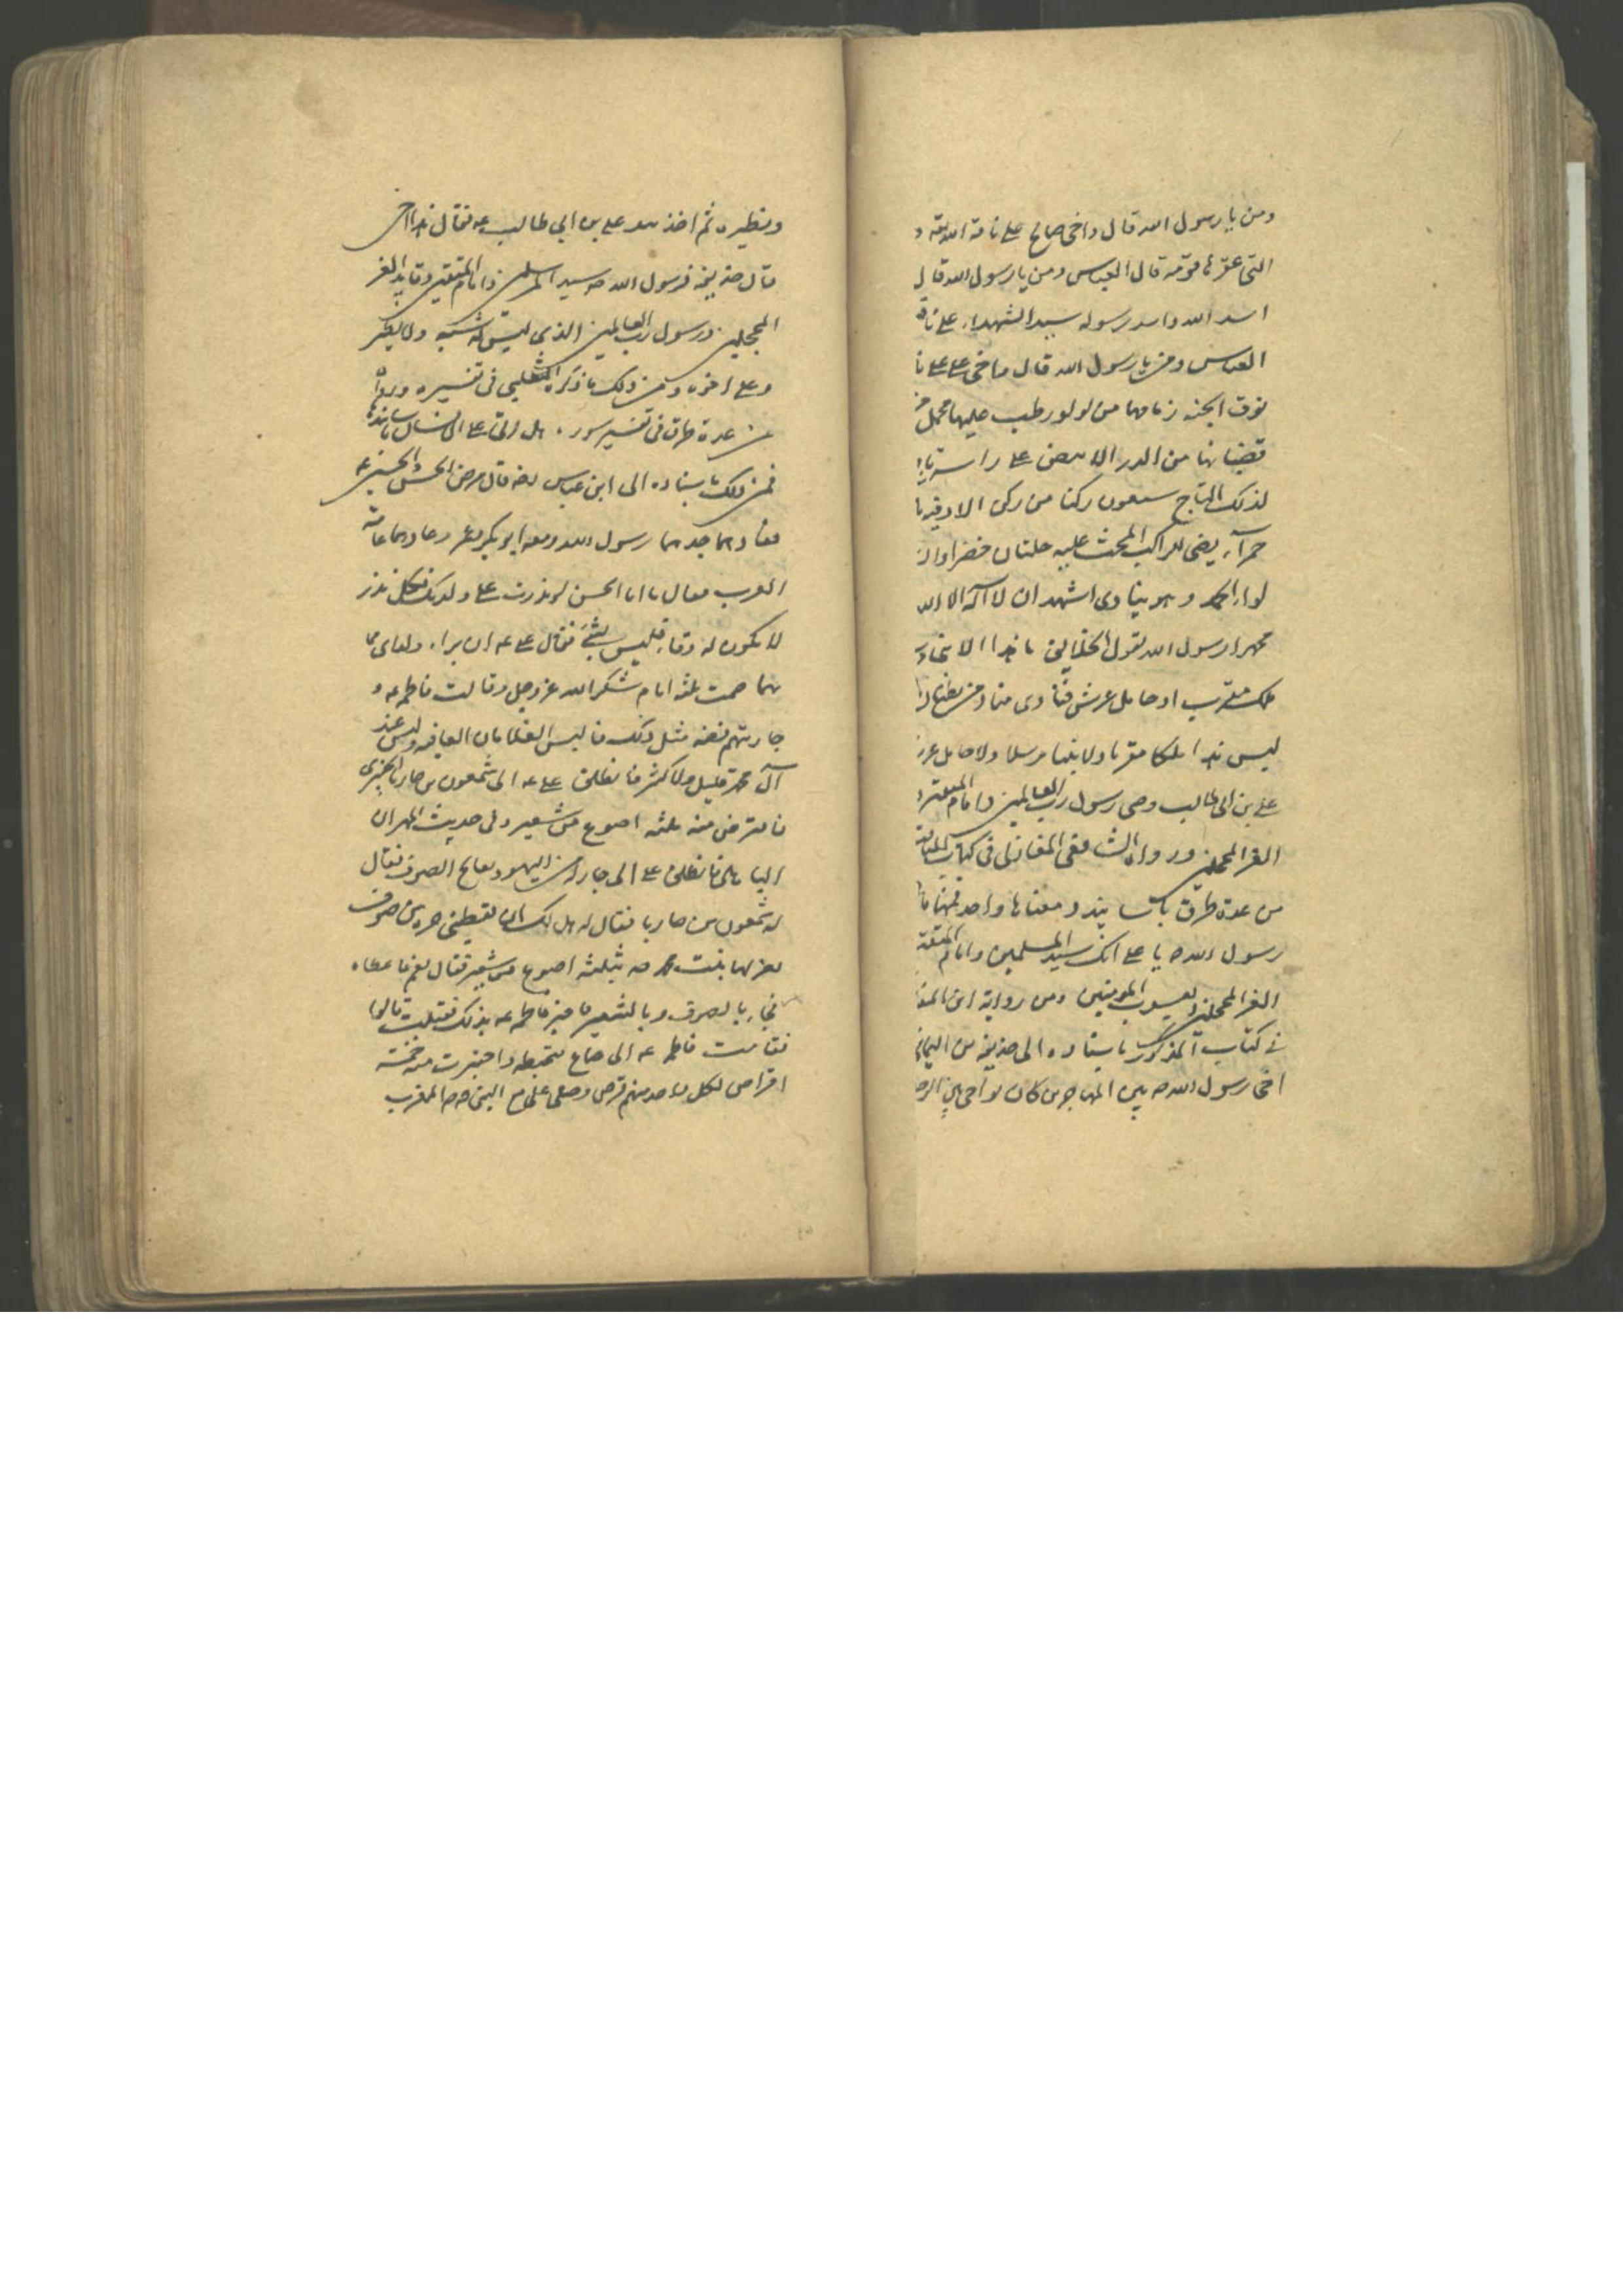 ومن يا رسول الله قال واخى صالح على ناقة الله
التى عقرها قومه قال العباس ومن يا رسول الله قال
اسد الله واسد رسوله سيد الشهداء على ناقة
العباس ومن يا رسول الله قال واخى على على نا
نوق الجنه زمامها من لولو رطب عليها محمل من
قضبانها من الدر الابيض على راسه تا
لذلك التاج سبعون ركنا من ركن الا وفيه يا
حمرآء يضى للراكب المحث عليه حلتان خضراوان
لواء الحمد وهو ينادى اشهد ان لا اله الا الله
محمدا رسول الله تقول الخلايق ما هذا الا نبى
ملك مقرب او حامل عرش فينادى مناد من بطنان
ليس هذا ملكا مقربا ولا نبيا مرسلا ولا حامل عرش
على بن ابى طالب وصى رسول رب العالمين وامام المتقين و
الغر المحجلين ورواه الشافعى المغازلى فى كتاب المناقب
من عدة طرق باسانيد ومعناها واحد فمنها
رسول الله صه يا على انك سيد المسلمين وامام المتقين
الغر المحجلين ويعسوب المومنين ومن رواية ابن المغا
فى كتاب المذكور باسناده الى حذيفه بن اليمان
اخى رسول الله صه بين المهاجرين كان يواخى بين الرجل
ونظيره ثم اخذ بيد على بن ابى طالب عه فقال هذا اخى
قال حذيفه فرسول الله صه سيد المسلمين وامام المتقين وقايد الغر
المحجلين ورسول رب العالمين الذى ليس له شبيه ولا نظير
وعلى اخوه ومن ذلك ما ذكره الثعلبى فى تفسيره ورواه
من عدة طرق فى تفسير سورة هل اتى على الانسان باسانيدها
فمن ذلك باسناده الى ابن عباس رضه قال مرض الحسن والحسين عه
فعادهما جدهما رسول الله ومعه ابو بكر وعمر وعادهما عامة
العرب فقال يا ابا الحسن لو نذرت على ولديك فكل نذر
لا يكون له وفاء فليس بشئ فقال على عه ان براء ولداى مما
بهما صمت ثلثه ايام شكرا لله عز وجل وقالت فاطمه عه و
جاريتهم فضه مثل ذلك فالبس الغلامان العافيه وليس عند
آل محمد قليل ولا كثير فانطلق على عه الى شمعون بن حاريا الخيبرى
فاقترض منه ثلثه اصوع من شعير وفى حديث المهران
الباهلى فانطلق على الى جار له من اليهود يعالج الصوف يقال
له شمعون بن حاريا فقال له هل لك ان تعطينى جزه من صوف
تغزلها بنت محمد صه بثلثه اصوع من شعير فقال نعم فاعطاه
فجاء بالصوف وبالشعير فاخبر فاطمه عه بذلك فقبلت قالوا
فقامت فاطمه عه الى صاع فطحنته واختبزت منه خمسه
اقراص لكل واحد منهم قرص وصلى على مع النبى صه المغرب